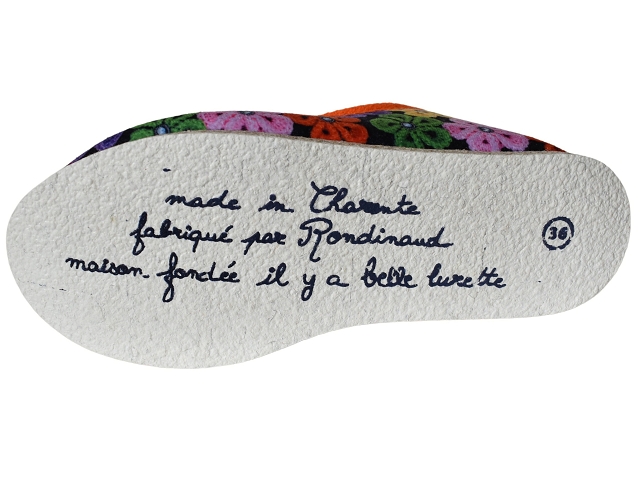 made in Charente
fabriqué par Rondinaud
maison fondée il y a belle lurette
36